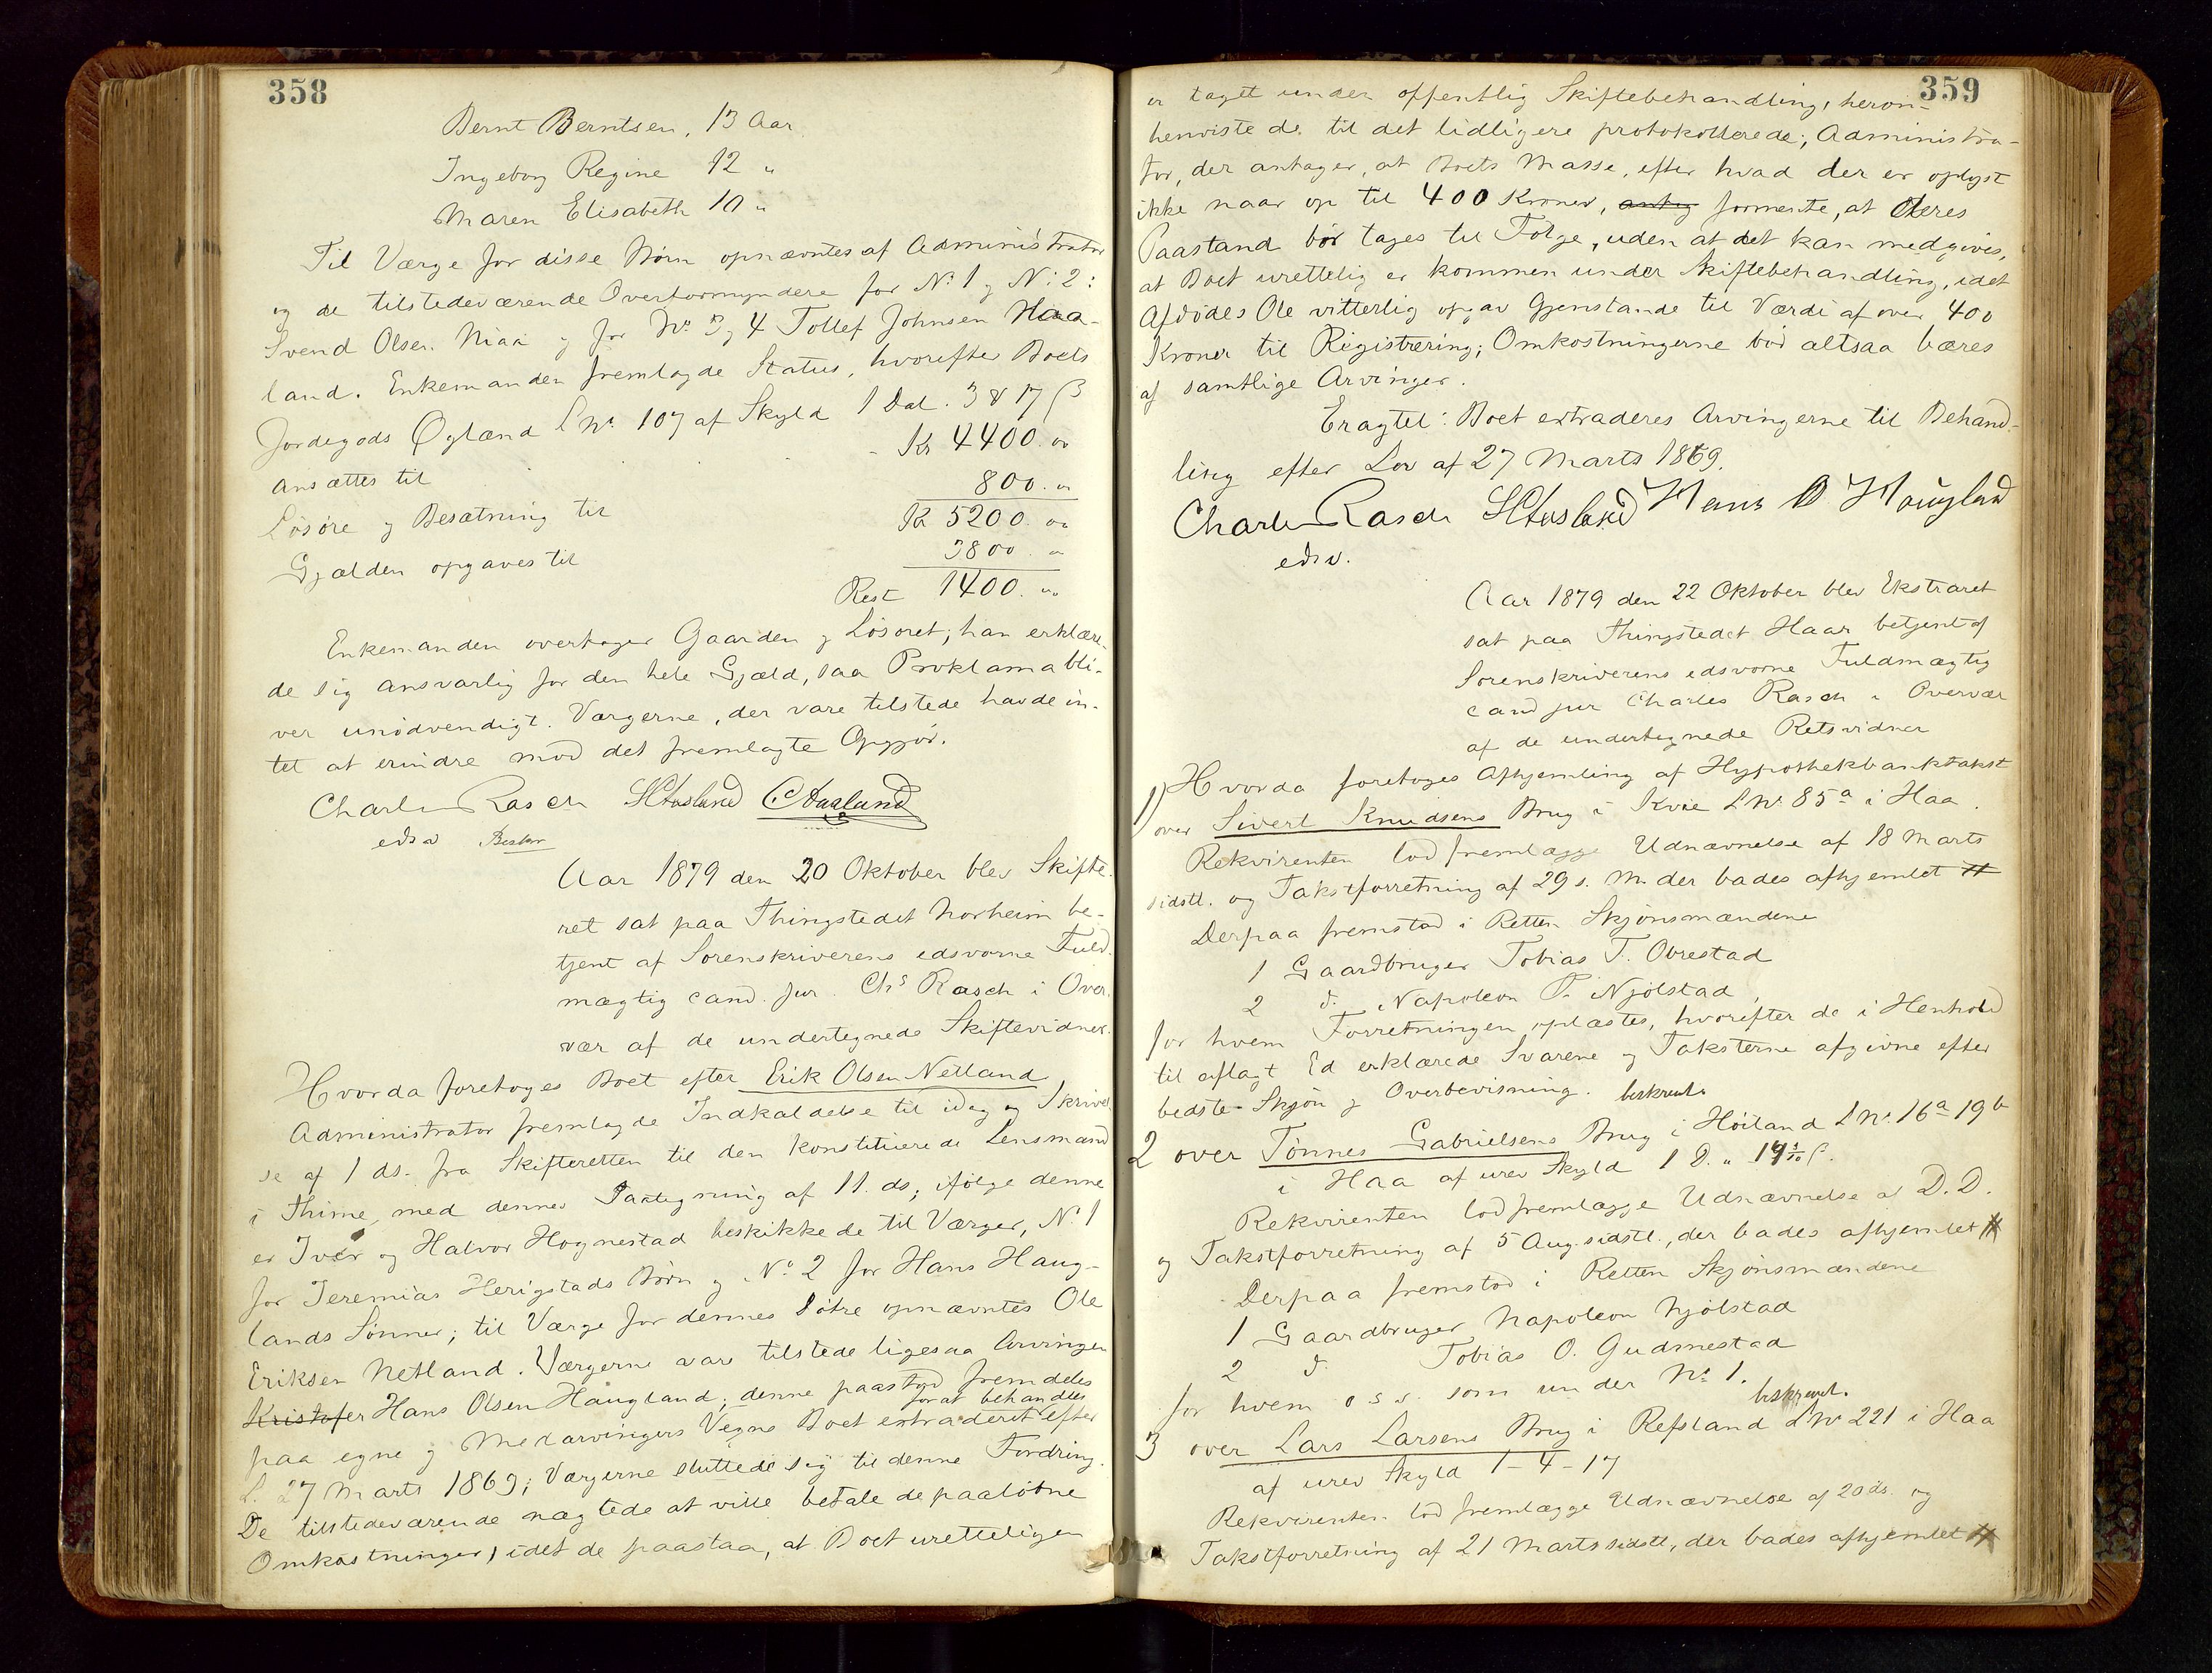 358
Bernt Berntsen, 13 Aar
Ingeborg Regine 12 "
Maren Elisabeth 10 "
Til Værge for disse Børn opnævntes af Administrator
og de tilstedeværende Overformyndere for No 1 og No 2:
Svend Olsen Niaa og for No 3 og 4 Tollef Johnsen Haa-
land. Enkemanden fremlagde Status, hvorefter Boets
Jordegods Øgland LNo 107 af Skyld 1 Dal. 3 & 17 ß
ansættes til Kr 4400. 00
Løsøre og Besætning til 800. 00
Kr 5200. 00
Gjælden opgaves til 3800. 00
Rest 1400. 00
Enkemanden overtager Gaarden og Løsøret; han erklære-
de sig ansvarlig for den hele Gjæld, saa Proklama bli-
ver unødvendigt. Værgerne, der vare tilstede havde in-
tet at erindre mod det fremlagte Opgjør.
Charles Rasch
edsv
Aar 1879 den 20 Oktober blev Skifte-
ret sat paa Thingstedet Norheim be-
tjent af Sorenskriverens edsvorne Fuld-
mægtig cand. jur. Chs Rasch i Over-
vær af de undertegnede Skiftevidner.
Hvorda foretoges Boet efter Erik Olsen Netland
Administrator fremlagde Indkaldelse til idag og Skrivel-
se af 1 ds. fra Skifteretten til den konstituerede Lensmand
i Thime, med dennes Paategning af 11. ds; ifølge denne
er Iver og Halvor Hognestad beskikkede til Værger, No 1
for Jeremias Herigstads Børn og No 2 for Hans Haug-
lands Sønner; til Værge for dennes Døtre opnævntes Ole
Eriksen Netland. Værgerne vare tilstede ligesaa Arvingen
Kristofer Hans Olsen Haugland; denne paastod fremdeles
paa egne og Medarvingers Vegne Boet extraderet for at behandles efter
L. 27 Marts 1869; Værgerne sluttede sig til denne Fordring.
De tilstedeværende nægtede at ville betale de paaløbne
Omkostninger, idet de paastaa, at Boet uretteligen
359
er taget under offentlig Skiftebehandling, herom
henviste de til det tidligere protokollerede; Administra-
tor, der antager, at Boets Masse, efter hvad der er oplyst
ikke naar op til 400 Kroner, antog formente, at deres
Paastand bør tages til Følge, uden at det kan medgives,
at Boet urettelig er kommen under Skiftebehandling, idet
Afdødes Ole vitterlig opgav Gjenstande til Værdi af over 400
Kroner til Registrering; Omkostningerne bør altsaa bæres
af samtlige Arvinger.
Eragtet: Boet extraderes Arvingerne til Behand-
ling efter Lov af 27 Marts 1869.
Charles Rasch Hans O Haugland
edsv.
Aar 1879 den 22 Oktober blev Ekstraret
sat paa Thingstedet Haar betjent af
Sorenskriverens edsvorne Fuldmægtig
cand jur Charles Rasch i Overvær
af de undertegnede Retsvidner
Hvorda foretoges Afhjemling af Hypothekbanktakst
1) over Sivert Knudsens Brug i Kvie LNo 85a i Haa.
Rekvirenten lod fremlægge Udnævnelse af 18 Marts
sidstl. og Takstforretning af 29 s. M. der bades afhjemlet #
Derpaa fremstod i Retten Skjønsmændene
1 Gaardbruger Tobias T. Obrestad
2 d. Napoleon T. Njølstad,
for hvem Forretningen oplæstes, hvorefter de i Henhold
til aflagt Ed erklærede Svarene og Taksterne afgivne efter
bedste Skjøn og Overbevisning. beskrevet.
2 over Tønnes Gabrielsens Brug i Høiland LNo 16a 19b
i Haa af urev Skyld 1 D. " 19 ß.
Rekvirenten lod fremlægge Udnævnelse af D. D.
og Takstforretning af 5 Aug. sidstl., der bades afhjemlet #
Derpaa fremstod i Retten Skjønsmændene
1 Gaardbruger Napoleon Njølstad
2 d. Tobias O. Gudmestad
for hvem o s v. som under No 1. beskrevet.
3 over Lars Larsens Brug i Refsland LNo 221 i Haa
af urev Skyld 1-4-17
Rekvirenten lod fremlægge Udnævnelse af 20 ds. og
Takstforretning af 21 Marts sidstl, der bades afhjemlet #